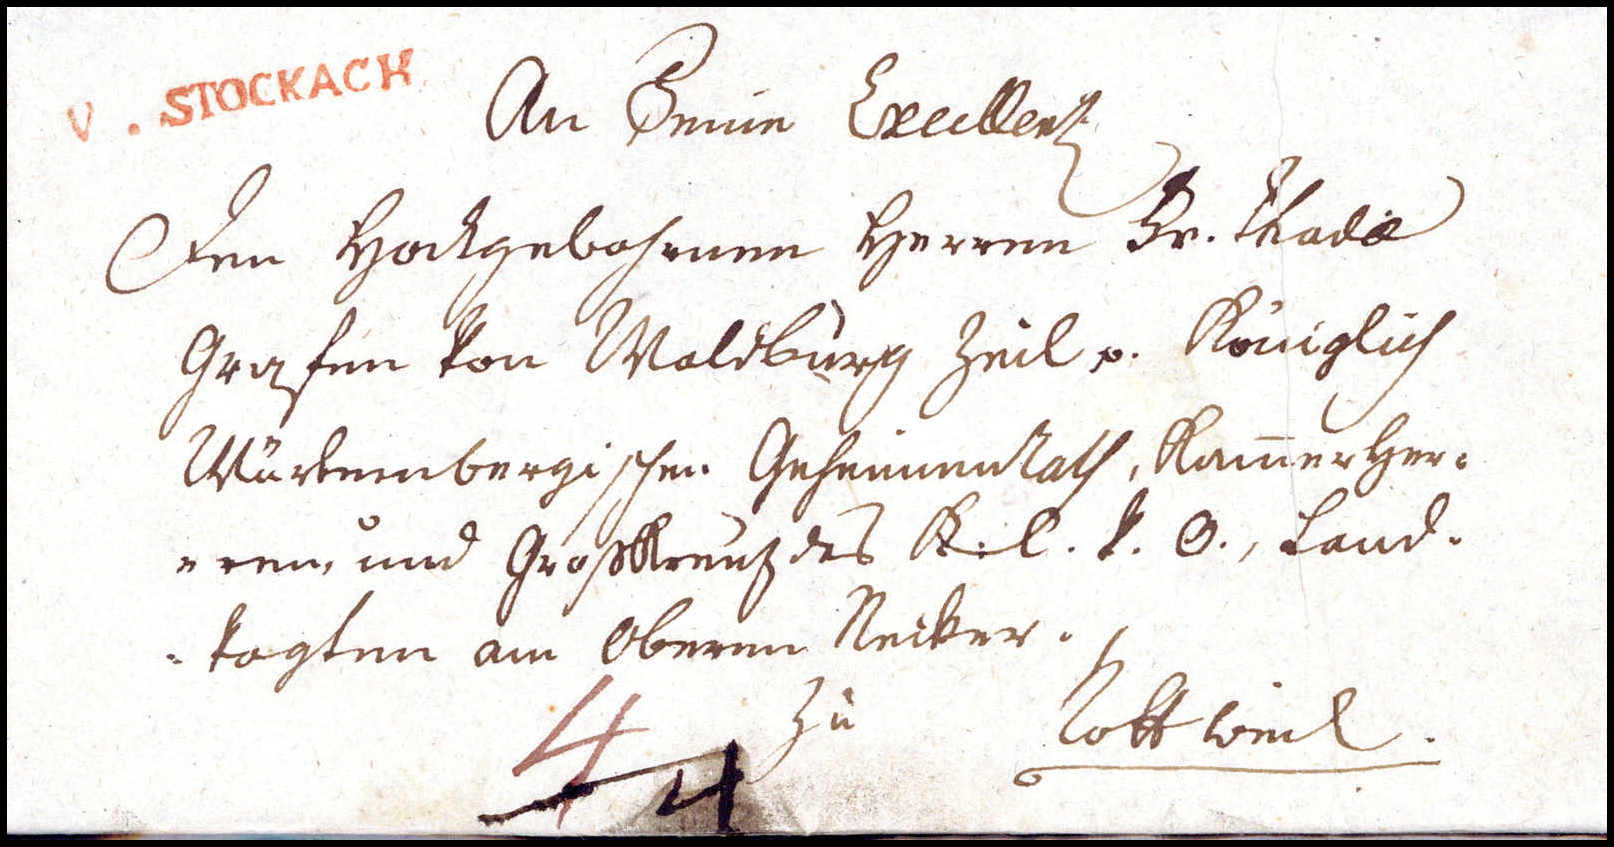 V . STOCKACH
An Seine Excellenz
Den Hochgebohrnen Herren Hr.
Grafen von Waldburg Zeil p. Königlich
Würtembergischen Geheimen Rath, Kam̅erHer=
=ren, und Großkreuz des K. C. V. O., Land=
=vogten am Oberen Necker.
zu Rottweil.
4
4